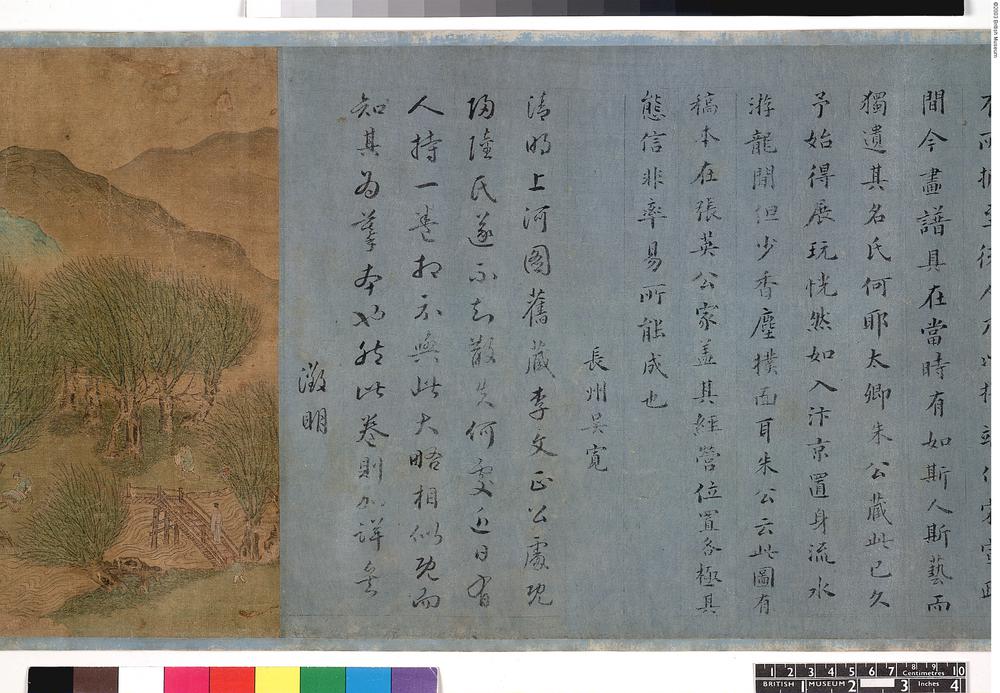 間今畫譜具在當時有如斯人斯藝而
獨遺其名氏何耶太卿朱公藏此已久
予始得展玩恍然如入汴京置身流水
游龍間但少香塵撲面耳朱公云此圖有
稿本在張英公家盖其經營位置各極其
態信非率易所能成也
長州吳寬
清明上河圖舊藏李文正公處既
歸陸氏遂不知散失何處近日有
人持一卷相示與此大略相似既而
知其為摹本也然此卷則加詳矣
徵明
©2003 British Museum
1 2 3 4 5 6 7 8 9 10
Centimetres
BRITISH MUSEUM
1 2 3 Inches 4